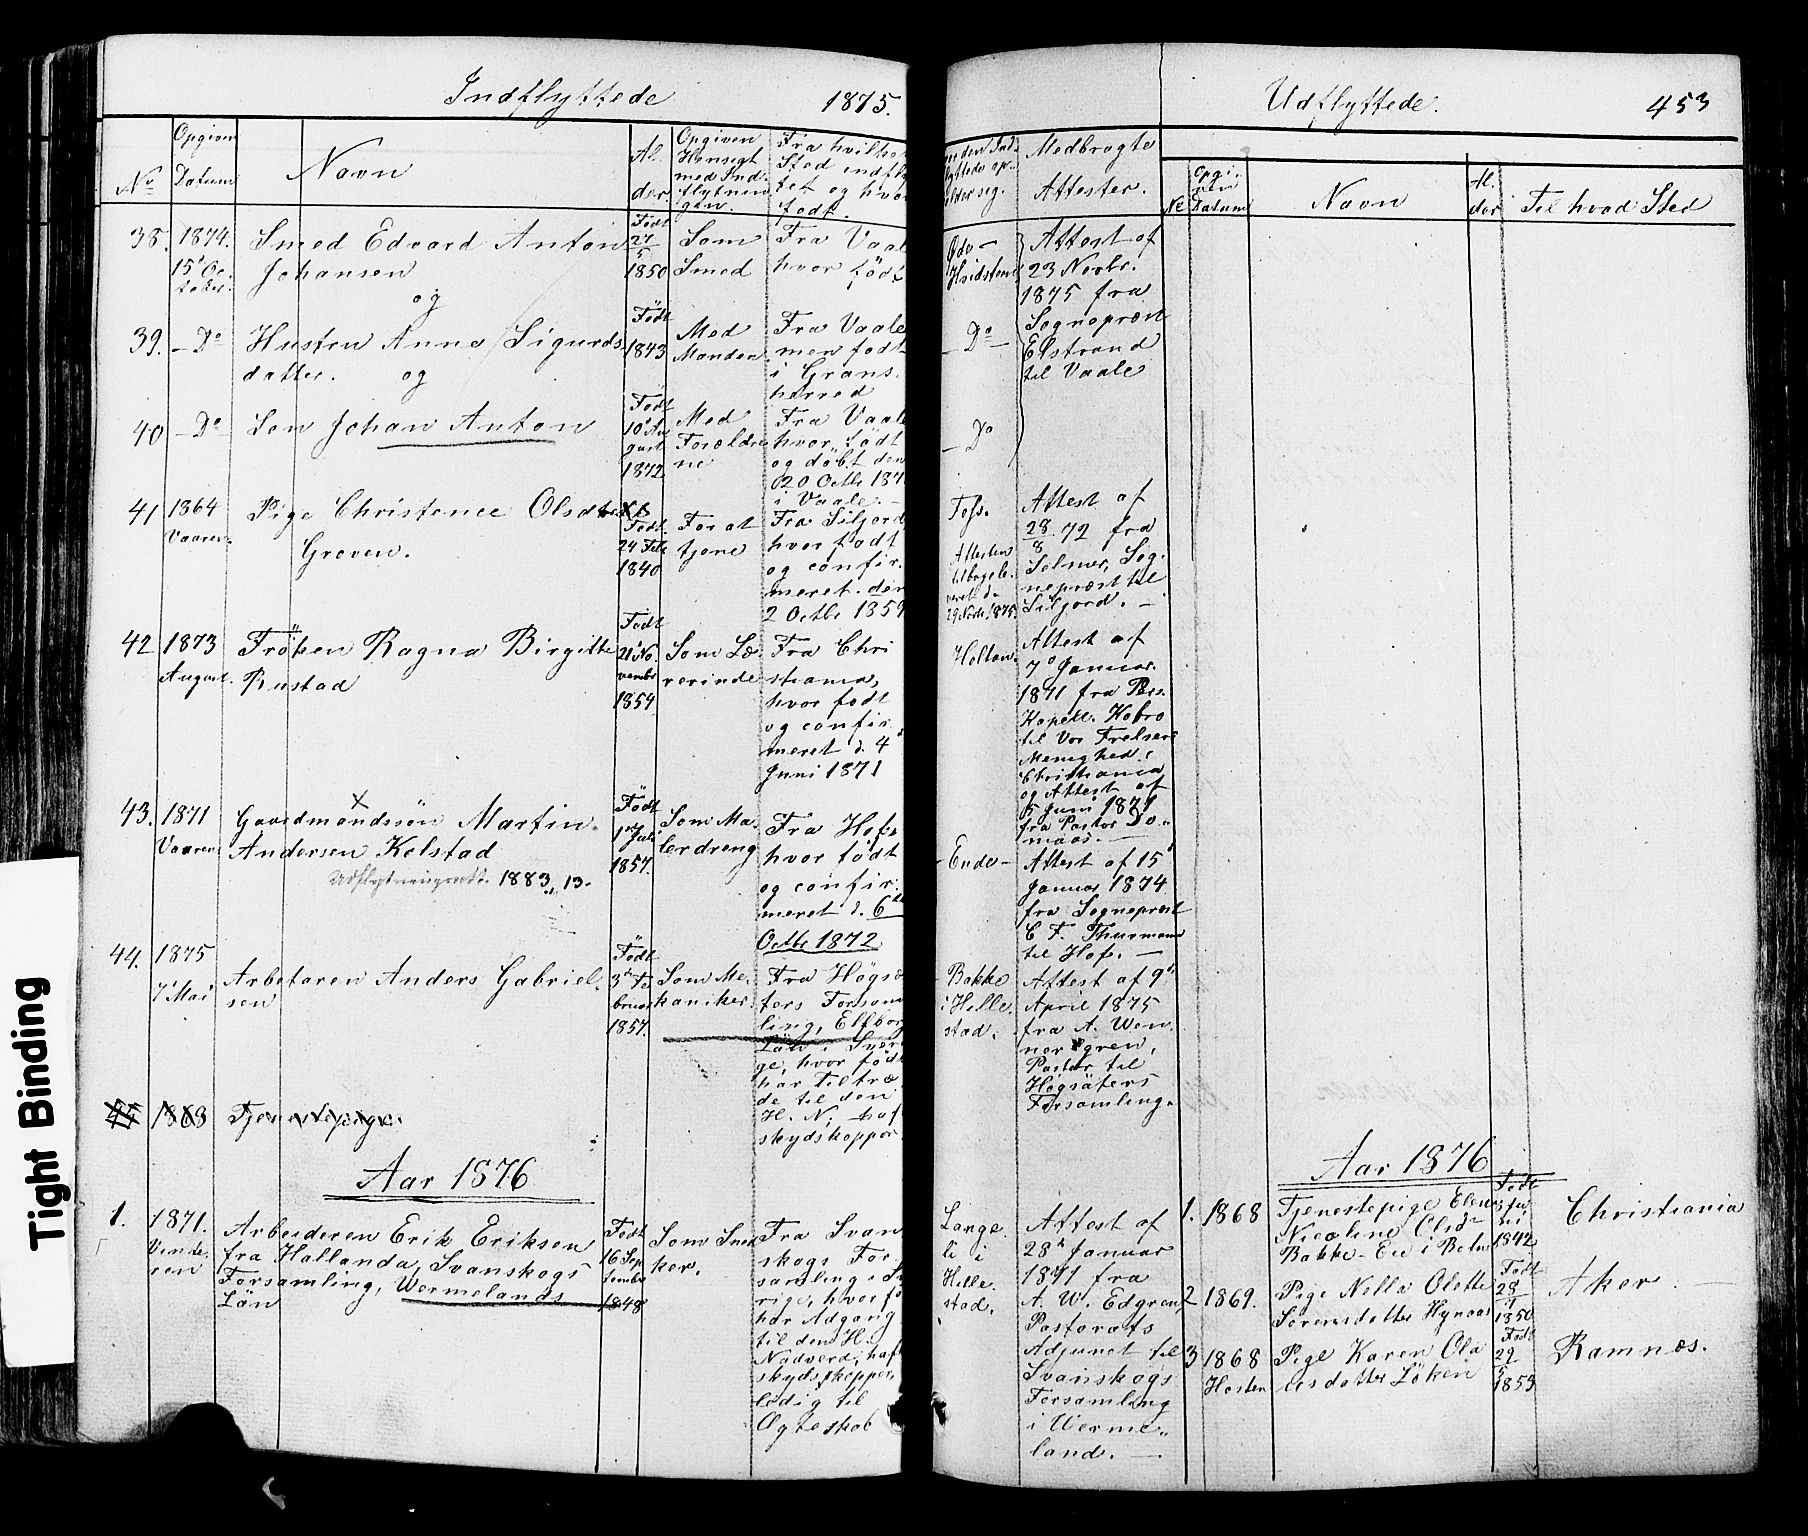 Indflyttede 1875.
No
Opgiven Datum
Navn
Alder
Opgiven Hensigt med Indflytningen.
Fra hvilket Sted indflyttet og hvor født.
38. 1874. 15de October.
Smed Edvard Anton Johansen
og
Født 27/5 1850
Som Smed
Fra Vaale hvor født
39. - Do
Hustru Anne Sigurdsdatter. og
Født 1843
Med Manden
Fra Vaale men født i Gransherred
40 - Do
Søn Johan Anton
Født 10 August 1872
Med Forældrene
Fra Vaale hvor født og døbt den 20 Octbr 187
i Vaale. -
41 1864 Vaaren
Pige Christence Olsdtr
Groven.
Født 24 Feb 1840
For at tjene
Fra Siljord hvor født og confirmeret den 2 Octbr 1859
42 1873 August.
Frøken Ragna Birgitte Rustad
Født 21 November 1854
Som Lærerinde
Fra Christiania, hvor født og confirmeret d. 4 Juni 1871
43. 1871 Vaaren
Gaardmandssøn Martin Andersen Kelstad
1883, 13.
Født 1 Juli 1857.
Som Malerdreng
Fra Hof, hvor født og confirmeret d. 6te Octbr 1872
44. 1875 7 Mai
Arbetaren Anders Gabrielsen
Født 3 Februar 1857.
Som Mekaniker
Fra Högsäters Forsamling, Elfborg Län i Sverige, hvor født har Tiltræde til den H. N., haf skydskopper
45 1868 Tjenestepige.
Aar 1876
1. 1871.
Arbeideren Erik Eriksen fra Hallanda, Svanskogs Forsamling, Wermelands Län
Født 16 September 1848
Som Snedker.
Fra Svanskogs Forsamling i Sverige, hvor fø
har Adgang til den H. Nadverd, haft skydskopper, lødig til Ægteskab
Medbragte Attester.
Attest af 23 Novbr. 1875 fra Sognepræst Elstrand til Vaale
- Do -
- Do
Fos.
Attesten tilbageleveret d. 29 Novbr 1875
Attest af 28/8 72 fra Selmer, Sognepræst til Siljord. -
Holtan.
Attest af 7de Januar 1871 fra Pers. Kapell. Kobro til Vor Frelsers Menighed i Christiania og Attest af 5 Juni 1871 fra Pastor Domaas. -
- Ende -
Attest af 15 Januar 1874 fra Sognepræst C. F. Thurmann til Hof. -
- Bakke i Hellestad.
Attest af 9 April 1875 fra A. Wennergren, Pastor til Högsäters Forsamling.
Langeli i Hellestad.
Attest af 28 Januar 1871 fra A. W. Edgren, Pastorats Adjunct til Svanskogs Forsamling i Wermeland. -
Udflyttede. 453
No
Opgiven Datum
Navn
Alder
Til hvad Sted
Aar 1876
1. 1868
Tjenestepige Elen Nicoline Olsdtr Bakke-Eie i Botne
1842
Christiania
2 1869.
Pige Nella Olette Sørensdatter Hynaas
Født 28/9 1850
Aker. -
3 1868 Høsten
Pige Karen Olalesdatter Løken
Født 29/5 1853
Ramnæs.
Tight Binding